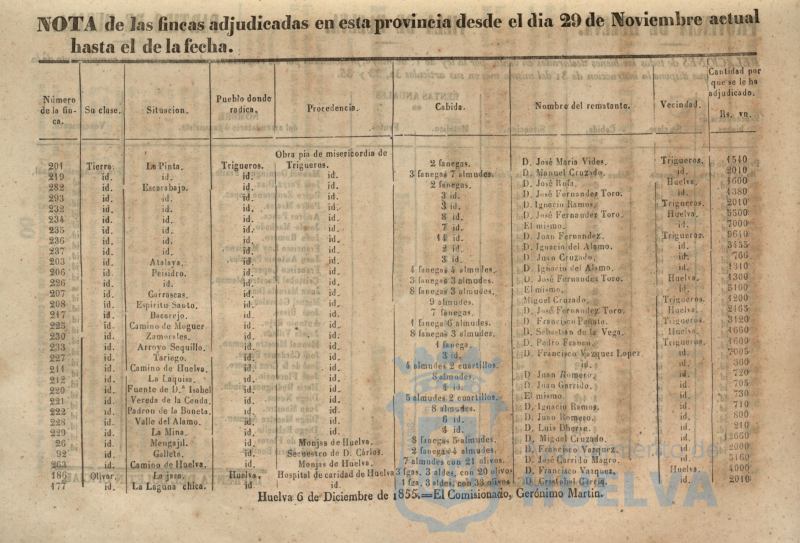 NOTA de las fincas adjudicadas en esta provincia desde el dia 29 de Noviembre actual
hasta el de la fecha.
Número de la finca. Su clase. Situacion. Pueblo donde radica. Procedencia. Cabida. Nombre del rematante. Vecindad. Cantidad por que se le ha adjudicado. Rs. vn.
Obra pia de misericordia de
201 Tierra. La Pinta. Trigueros. Trigueros. 2 fanegas. D. José María Vides. Trigueros. 1540
219 id. id. id. id. 3 fanegas 7 almudes. D. Manuel Cruzado. id. 2010
282 id. Escarabajo. id. id. 2 fanegas. D. José Rufa. Huelva. 1600
293 id. id. id. id. 3 id. D. José Fernandez Toro. id. 1380
232 id. id. id. id. 3 id. D. Ignacio Ramos. Trigueros. 2010
234 id. id. id. id. 8 id. D. José Fernandez Toro. Huelva. 5500
235 id. id. id. id. 7 id. El mismo. id. 7000
236 id. id. id. id. 14 id. D. Juan Fernandez. Trigueros. 9610
237 id. id. id. id. 2 id. D. Ignacio del Alamo. id.
203 id. Atalaya. id. id. 3 id. D. Juan Cruzado. id. 760
206 id. Peisidro. id. id. 4 fanegas 4 almudes. D. Ignacio del Alamo. id. 1310
226 id. id. id. id. 3 fanegas 3 almudes. D. José Fernandez Toro. Huelva. 4300
207 id. Carrascas. id. id. 8 fanegas 3 almudes. El mismo. id. 5100
208 id. Espiritu Santo. id. id. 9 almudes. Miguel Cruzado. Trigueros. 1200
217 id. Bacarejo. id. id. 7 fanegas. D. José Fernandez Toro. Huelva. 2465
225 id. Camino de Moguer. id. id. 1 fanega 6 almudes. D. Francisco Trigueros. 3120
230 id. Zamorales. id. id. 8 fanegas 3 almudes. D. Sebastian de la Vega. Huelva. 4660
233 id. Arroyo Sequillo. id. id. 1 fanega. D. Pedro Franco. Trigueros. 1600
227 id. Tariego. id. id. 3 id. D. Francisco Vazquez Lopez. id. 2005
211 id. Camino de Huelva. id. id. 4 almudes 2 cuartillos. id. id. 300
212 id. La Laquisa. id. id. 8 almudes. D. Juan Romero. id. 720
220 id. Fuente de D.ª Isabel id. id. 4 id. D. Juan Garrido. id. 705
221 id. Vereda de la Cenda. id. id. 5 almudes 2 cuartillos. El mismo. id. 730
222 id. Padron de la Buneta. id. id. 8 almudes. D. Ignacio Ramos. id. 710
228 id. Valle del Alamo. id. id. 6 id. D. Juan Romero. id. 800
229 id. La Mina. id. id. 4 id. D. Luis Dherse. id. 210
26 id. Mengajil. id. Monjas de Huelva. 8 fanegas 5 almudes. D. Miguel Cruzado. id. 2660
92 id. Galleta. id. Secuestro de D. Cárlos. 2 fanegas 4 almudes. D. Francisco Vazquez. id. 2000
263 id. Camino de Huelva. id. Monjas de Huelva. 7 almudes con 21 olivos. D. José Garrido Magro. id. 5160
186 Olivar. La jara. Huelva. Hospital de caridad de Huelva 3 fgas, 3 aldes, con 20 olivos D. Francisco Vazquez. Huelva. 4000
177 id. La Laguna chica. id. id. 1 fga, 3 aldes, con 33 olivos D. Cristobal Garcia. id. 2010
Huelva 6 de Diciembre de 1855.=El Comisionado, Gerónimo Martin.
HUELVA